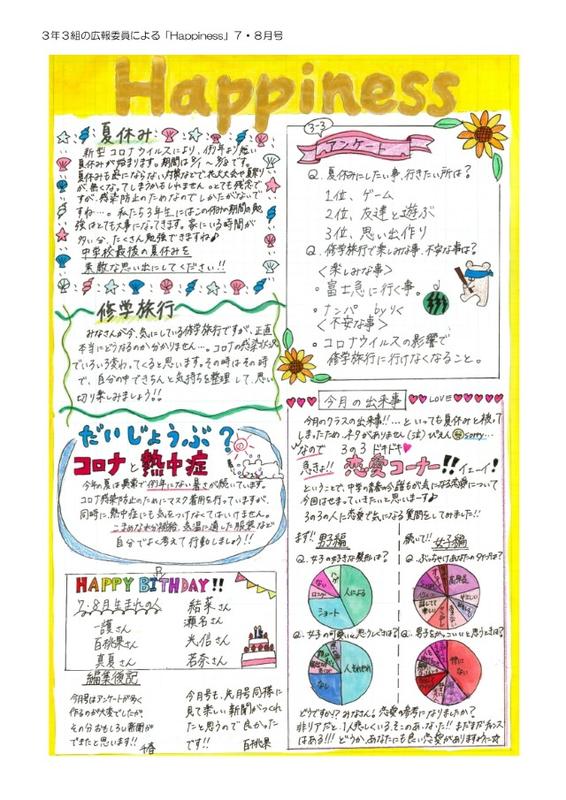 3年3組の広報委員による「Happiness」7・8月号
Happiness
夏休み
新型コロナウイルスにより、例年より短い
夏休みが始まります。期間は8/1 〜
が、無くなってしまうかもしれません。とても残念で
すが、感染防止のためなのでしかたがないで
すね…。私たち3年生にはこの休みの期間の勉
強はとても大事になってきます。家にいる時間が
多い分、たくさん勉強できますね♪
中学校最後の夏休みを
素敵な思い出にしてください!!
修学旅行
みなさんが今、気にしている修学旅行ですが、正直
本当にどうなるのか分かりません…。コロナの感染状況
でいろいろ変わってくると思います。その時はその時
で、自分の中できちんと気持ちを整理して、思い
切り楽しみましょう!!
だいじょうぶ?
コロナと熱中症
今年の夏は異常で例年にない暑さが続いています。
コロナ感染防止のためにマスク着用を行っていますが、
同時に、熱中症にも気をつけなくてはいけません。
こまめな水分補給、気温に適した服装など
自分でよく考えて行動しましょう!!
HAPPY BITHDAY!!
7・8月生まれの人
結菜さん
瀬名さん
一護さん
百桃果さん
光信さん
真夏さん
若奈さん
編集後記
今月号はアンケートが多く
作るのが大変でしたが、
その分おもしろい新聞が
できたと思います!!
千春
今月号も、先月号同様に
見て楽しい新聞がつくれ
たと思うので良かった
です!!
百桃果
3-3
アンケート
Q. 夏休みにしたい事、行きたい所は?
1位、ゲーム
2位、友達と遊ぶ
3位、思い出作り
Q. 修学旅行で楽しみな事、不安な事は?
<楽しみな事>
・富士急に行く事。
・ナンパ by りく
<不安な事>
・コロナウイルスの影響で
修学旅行に行けなくなること。
今月の出来事
LOVE
今月のクラスの出来事!!…といっても夏休みと被って
しまったため、ネタがありません(泣)ぴえん sorry…
なので 3の3 ドキドキ
急きょ!! 恋愛コーナー!! イェーイ!
ということで、中学の青春の今、誰もが気になる恋愛について
今回はせまっていきたいと思います♪
3の3の人に恋愛で気になる質問をしてみました!!
まず!! 男子編
Q. 女子の好きな髪形は?
人による
ショート
ロング
ない
Q. 女子の可愛いと思うしぐさは?
人それぞれ
なし
続いて!! 女子編
Q. ぶっちゃけあなたのタイプは?
高身長
Q. 男子をかっこいいと思うときは?
特にない
どうですか!? みなさん。恋愛の参考になりましたか?
非リアだと1人悲しくいる、そこのあなた!! まだまだチャンス
はある!!! どうか、あなたにも良い恋愛がありますように☆